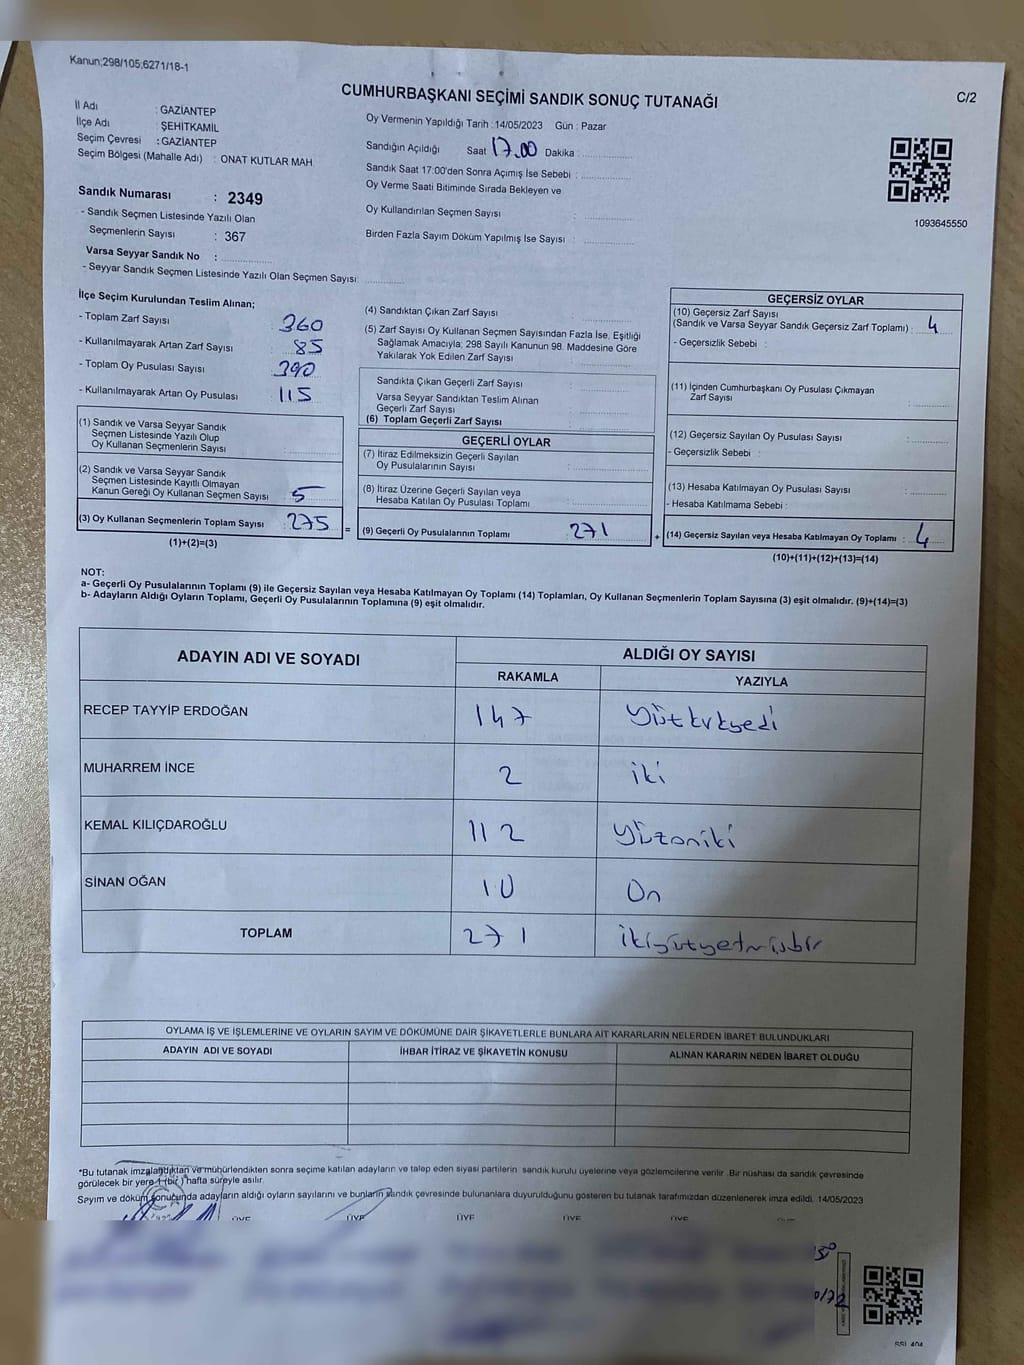 Kanun;298/105;6271/18-1
CUMHURBAŞKANI SEÇİMİ SANDIK SONUÇ TUTANAĞI
C/2
İl Adı : GAZİANTEP
İlçe Adı : ŞEHİTKAMİL
Seçim Çevresi : GAZİANTEP
Seçim Bölgesi (Mahalle Adı) : ONAT KUTLAR MAH
Sandık Numarası : 2349
- Sandık Seçmen Listesinde Yazılı Olan
Seçmenlerin Sayısı : 367
Varsa Seyyar Sandık No :
- Seyyar Sandık Seçmen Listesinde Yazılı Olan Seçmen Sayısı:
Oy Vermenin Yapıldığı Tarih : 14/05/2023 Gün : Pazar
Sandığın Açıldığı Saat 17.00 Dakika :
Sandık Saat 17:00'den Sonra Açımış İse Sebebi :
Oy Verme Saati Bitiminde Sırada Bekleyen ve
Oy Kullandırılan Seçmen Sayısı :
Birden Fazla Sayım Döküm Yapılmış İse Sayısı :
1093645550
İlçe Seçim Kurulundan Teslim Alınan;
- Toplam Zarf Sayısı : 360
- Kullanılmayarak Artan Zarf Sayısı : 85
- Toplam Oy Pusulası Sayısı : 390
- Kullanılmayarak Artan Oy Pusulası : 115
(1) Sandık ve Varsa Seyyar Sandık
Seçmen Listesinde Yazılı Olup
Oy Kullanan Seçmenlerin Sayısı :
(2) Sandık ve Varsa Seyyar Sandık
Seçmen Listesinde Kayıtlı Olmayan
Kanun Gereği Oy Kullanan Seçmen Sayısı : 5
(3) Oy Kullanan Seçmenlerin Toplam Sayısı : 275
(1)+(2)=(3)
=
(4) Sandıktan Çıkan Zarf Sayısı :
(5) Zarf Sayısı Oy Kullanan Seçmen Sayısından Fazla İse, Eşitliği
Sağlamak Amacıyla; 298 Sayılı Kanunun 98. Maddesine Göre
Yakılarak Yok Edilen Zarf Sayısı :
Sandıkta Çıkan Geçerli Zarf Sayısı :
Varsa Seyyar Sandıktan Teslim Alınan
Geçerli Zarf Sayısı :
(6) Toplam Geçerli Zarf Sayısı :
GEÇERLİ OYLAR
(7) İtiraz Edilmeksizin Geçerli Sayılan
Oy Pusulalarının Sayısı :
(8) İtiraz Üzerine Geçerli Sayılan veya
Hesaba Katılan Oy Pusulası Toplamı :
(9) Geçerli Oy Pusulalarının Toplamı : 271
+
GEÇERSİZ OYLAR
(10) Geçersiz Zarf Sayısı
(Sandık ve Varsa Seyyar Sandık Geçersiz Zarf Toplamı) : 4
- Geçersizlik Sebebi :
(11) İçinden Cumhurbaşkanı Oy Pusulası Çıkmayan
Zarf Sayısı :
(12) Geçersiz Sayılan Oy Pusulası Sayısı :
- Geçersizlik Sebebi :
(13) Hesaba Katılmayan Oy Pusulası Sayısı :
- Hesaba Katılmama Sebebi :
(14) Geçersiz Sayılan veya Hesaba Katılmayan Oy Toplamı : 4
(10)+(11)+(12)+(13)=(14)
NOT:
a- Geçerli Oy Pusulalarının Toplamı (9) ile Geçersiz Sayılan veya Hesaba Katılmayan Oy Toplamı (14) Toplamları, Oy Kullanan Seçmenlerin Toplam Sayısına (3) eşit olmalıdır. (9)+(14)=(3)
b- Adayların Aldığı Oyların Toplamı, Geçerli Oy Pusulalarının Toplamına (9) eşit olmalıdır.
ADAYIN ADI VE SOYADI
ALDIĞI OY SAYISI
RAKAMLA YAZIYLA
RECEP TAYYİP ERDOĞAN 147 Yüzkırkyedi
MUHARREM İNCE 2 iki
KEMAL KILIÇDAROĞLU 112 Yüzoniki
SİNAN OĞAN 10 On
TOPLAM 271 ikiyüzyetmişbir
OYLAMA İŞ VE İŞLEMLERİNE VE OYLARIN SAYIM VE DÖKÜMÜNE DAİR ŞİKAYETLERLE BUNLARA AİT KARARLARIN NELERDEN İBARET BULUNDUKLARI
ADAYIN ADI VE SOYADI İHBAR İTİRAZ VE ŞİKAYETİN KONUSU ALINAN KARARIN NEDEN İBARET OLDUĞU
*Bu tutanak imzalandıktan ve mühürlendikten sonra seçime katılan adayların ve talep eden siyasi partilerin sandık kurulu üyelerine veya gözlemcilerine verilir. Bir nüshası da sandık çevresinde
görülecek bir yere 1 (bir) hafta süreyle asılır.
Sayım ve döküm sonucunda adayların aldığı oyların sayılarını ve bunların sandık çevresinde bulunanlara duyurulduğunu gösteren bu tutanak tarafımızdan düzenlenerek imza edildi. 14/05/2023
ÜYE ÜYE ÜYE ÜYE ÜYE